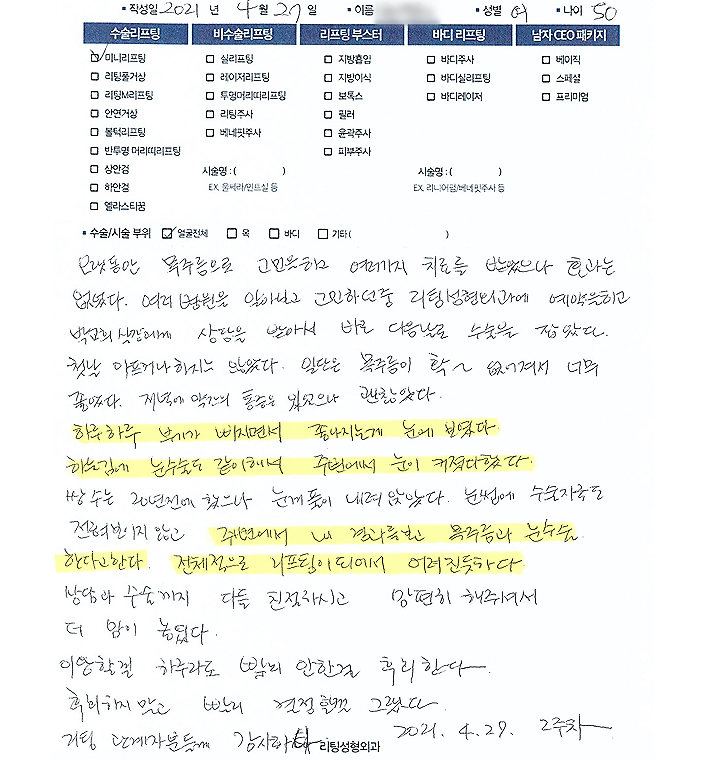 • 작성일 2021 년 4 월 27 일 • 이름 • 성별 여 • 나이 50
수술리프팅 비수술리프팅 리프팅 부스터 바디 리프팅 남자 CEO 패키지
미니리프팅 실리프팅 지방흡입 바디주사 베이직
리팅풀거상 레이저리프팅 지방이식 바디실리프팅 스페셜
리팅M리프팅 투명머리띠리프팅 보톡스 바디레이저 프리미엄
안면거상 리팅주사 필러
볼턱리프팅 베네핏주사 윤곽주사
반투명 머리띠리프팅 피부주사
상안검 시술명 : ( ) 시술명 : ( )
하안검 EX. 울쎄라/민트실 등 EX. 리니어펌/베네핏주사 등
엘라스티꿈
• 수술/시술 부위 얼굴전체 목 바디 기타 ( )
오랫동안 목주름으로 고민을하고 여러가지 치료를 받았으나 효과는
없었다. 여러 병원을 알아보고 고민하던중 리팅성형외과에 예약을하고
상담을 받아서 바로 다음날로 수술을 잡았다.
첫날 아프거나하지는 않았다. 일단은 목주름이 확~ 없어져서 너무
좋았다. 저녁에 약간의 통증은 있었으나 괜찮았다.
하루하루 붓기가 빠지면서 좋아지는게 눈에 보였다
하는김에 눈수술도 같이해서 주변에서 눈이 커졌다했다.
쌍수는 20년전에 했으나 눈꺼풀이 내려 앉았다. 눈썹에 수술자국도
전혀보이지 않고 주변에서 내 결과를보고 목주름과 눈수술
한다고한다. 전체적으로 리프팅이 되어서 어려진듯하다
상담과 수술까지 다들 친절하시고 맘편히 해주셔서
더 맘이 놓였다.
이왕할걸 하루라도 빨리 안한걸 후회한다
후회하지 말고 빨리 결정할껄 그랬다.
리팅 관계자분들께 감사하 리팅성형외과 2021. 4. 29. 2주차